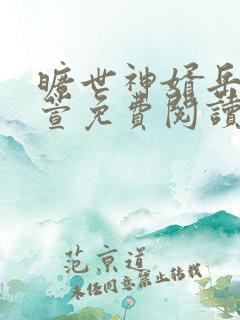 曠世神婿岳
萱免費閱讀
范京道
未經同意禁止轉載